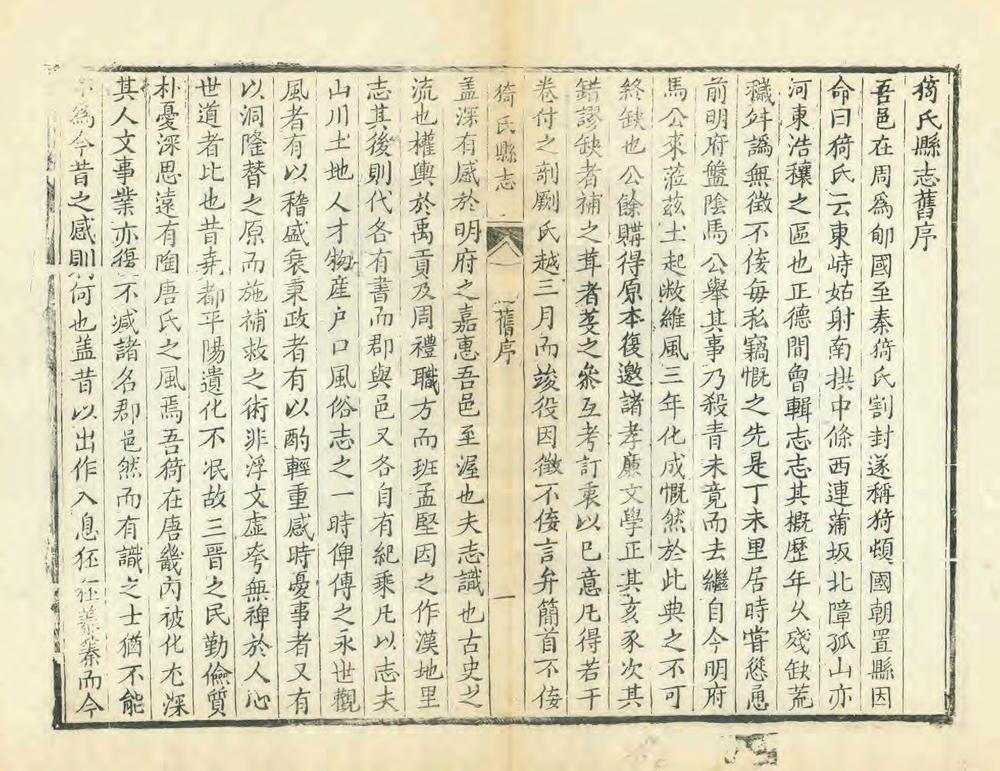 猗氏縣志舊序
吾邑在周為郇國至秦猗氏割封遂稱猗頓國朝置縣因
命曰猗氏云東峙姑射南拱中條西連蒲坂北障孤山亦
河東浩穰之區也正德間曾輯志志其概歷年久殘缺荒
穢舛譌無徵不佞每私竊慨之先是丁未里居時嘗慫恿
前明府盤陰馬公舉其事乃殺青未竟而去繼自今明府
馬公來蒞茲土起敝維風三年化成慨然於此典之不可
終缺也公餘購得原本復邀諸孝廉文學正其亥豕次其
錯謬缺者補之葺者芟之參互考訂乘以已意凡得若干
卷付之剞劂氏越三月而竣役因徵不佞言弁簡首不佞
猗氏縣志 舊序 一
盖深有感於明府之嘉惠吾邑至渥也夫志識也古史之
流也權輿於禹貢及周禮職方而班孟堅因之作漢地里
志其後則代各有書而郡與邑又各自有紀乘凡以志夫
山川土地人才物産户口風俗志之一時俾傳之永世觀
風者有以稽盛衰秉政者有以酌輕重感時憂事者又有
以洞隆替之原而施補救之術非浮文虛夸無裨於人心
世道者比也昔堯都平陽遺化不泯故三晉之民勤儉質
朴憂深思遠有陶唐氏之風焉吾猗在唐畿內被化尤深
其人文事業亦復不減諸名郡邑然而有識之士猶不能
不為今昔之感則何也盖昔以出作入息狉狉蓁蓁而今